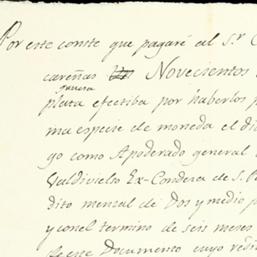 Por este conste que pagaré al S.r
careñas Novecientos
fuera
plata efectiba por haberlos
ma especie de moneda el di
yo como Apoderado general
Valdivielso Ex-Condesa de S.
dito mensal de Dos y medio p
y con el termino de seis meses
de este Documento cuyo redi